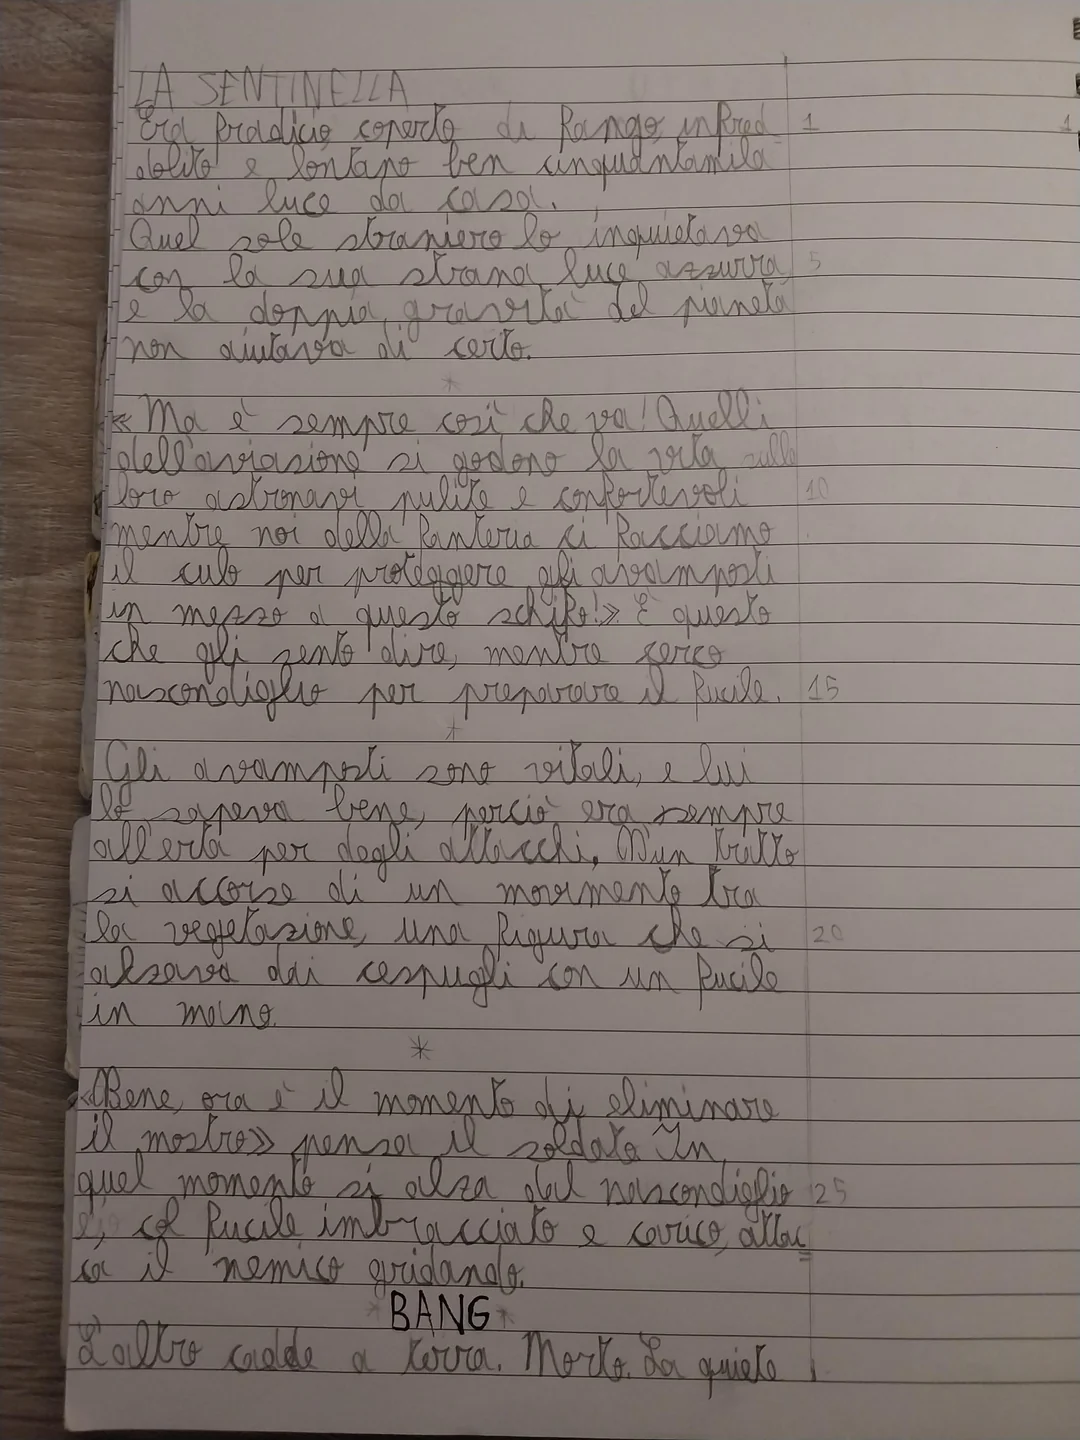 LA SENTINELLA
Era fradicio, coperto di fango, infred 1
dolito e lontano ben cinquantamila
anni luce da casa.
Quel sole straniero lo inquietava
con la sua strana luce azzurra, 5
e la doppia gravità del pianeta
non aiutava di certo.
*
«Ma è sempre così che va! Quelli
dell'aviazione si godono la vita sulle
loro astronavi pulite e confortevoli 10
mentre noi della fanteria ci facciamo
il culo per proteggere gli avamposti
in mezzo a questo schifo!» È questo
che gli sento dire, mentre cerco
nascondiglio per preparare il fucile. 15
*
Gli avamposti sono vitali, e lui
lo sapeva bene, perciò era sempre
all'erta per degli attacchi. D'un tratto
si accorse di un movimento tra
la vegetazione, una figura che si 20
alzava dai cespugli con un fucile
in mano.
*
«Bene, ora è il momento di eliminare
il mostro» pensa il soldato. In
quel momento si alza dal nascondiglio 25
e, col fucile imbracciato e carico, attac
ca il nemico gridando.
* BANG *
L'altro cadde a terra. Morto. La quiete
1